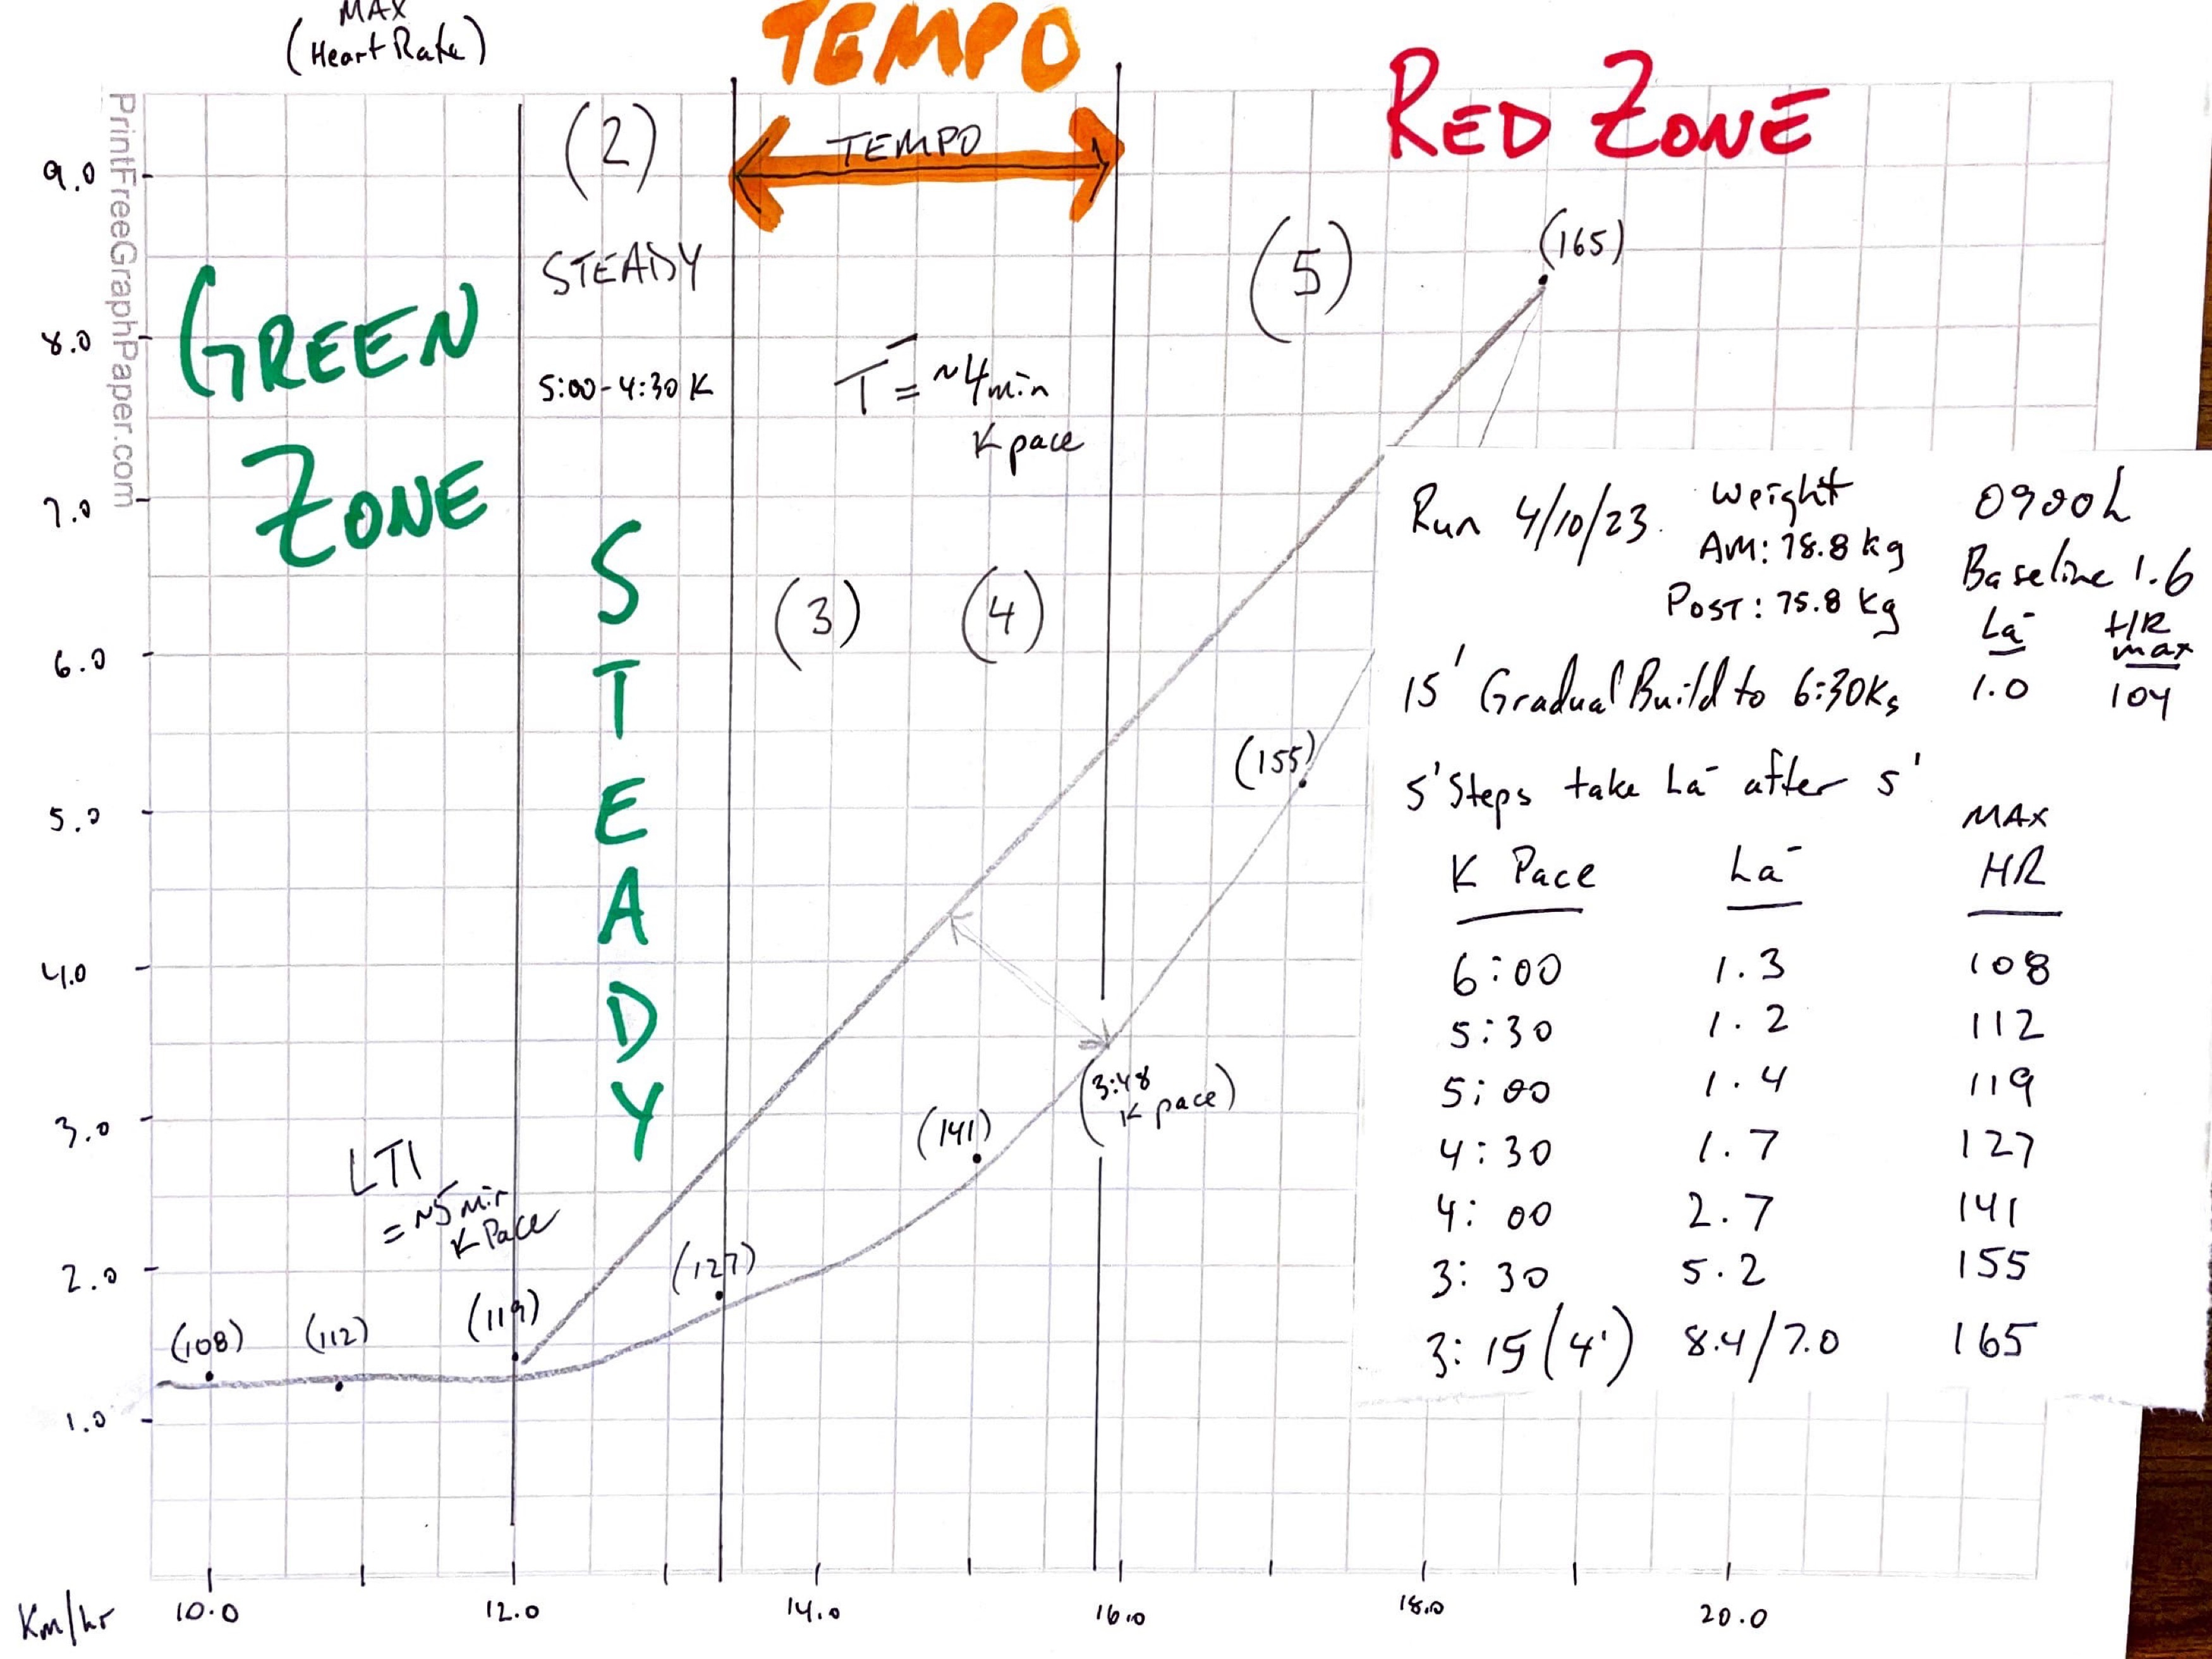 MAX
(Heart Rate)
TEMPO
RED ZONE
PrintFreeGraphPaper.com
(2)
TEMPO
9.0
8.0
7.0
6.0
5.0
4.0
3.0
2.0
1.0
GREEN
ZONE
STEADY
5:00-4:30 K
T = ~4min
K pace
(5)
(165)
STEADY
(3)
(4)
(155)
(3:48
K pace)
(141)
(127)
(119)
(112)
(108)
LT1
= ~5 min
K Pace
Run 4/10/23.
Weight
AM: 78.8 kg
POST: 75.8 kg
0900h
Baseline 1.6
La⁻ H/R
max
15' Gradual Build to 6:30Ks 1.0 104
5' Steps take La⁻ after 5'
MAX
K Pace La⁻ HR
6:00 1.3 108
5:30 1.2 112
5:00 1.4 119
4:30 1.7 127
4:00 2.7 141
3:30 5.2 155
3:15 (4') 8.4/7.0 165
Km/hr 10.0 12.0 14.0 16.0 18.0 20.0